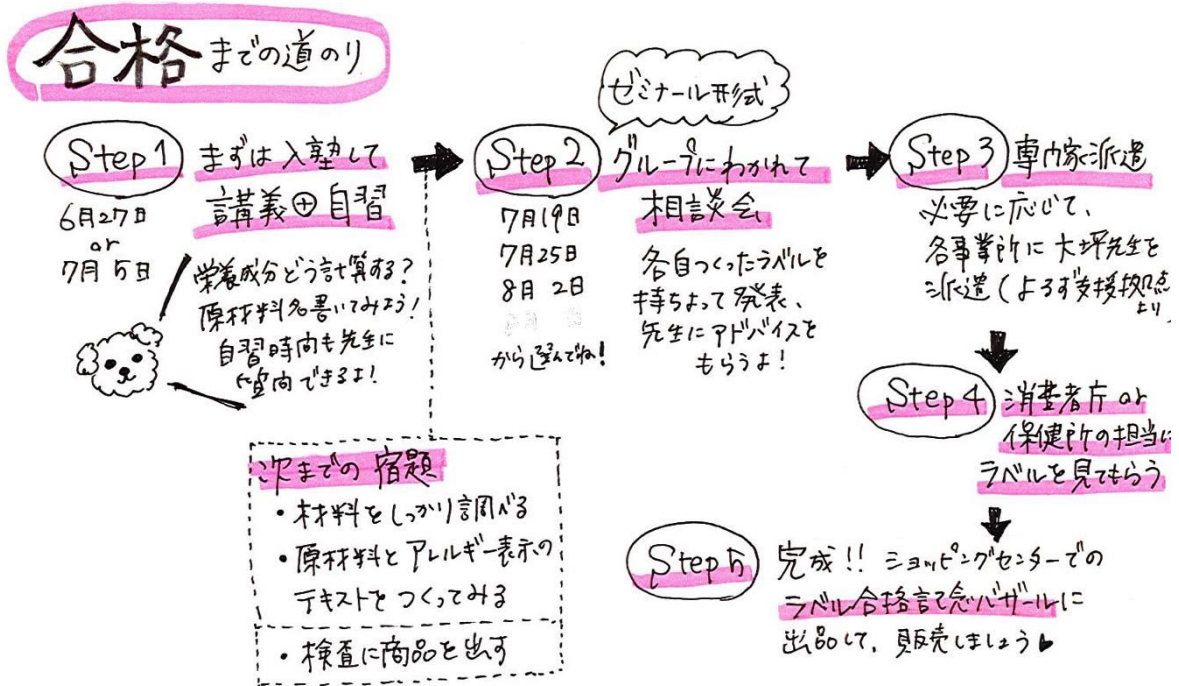 合格までの道のり
Step 1
まずは入塾して
講義⊕自習
6月27日
or
7月5日
栄養成分どう計算する?
原材料名書いてみよう!
自習時間も先生に
質問できるよ!
次までの宿題
・材料をしっかり調べる
・原材料とアレルギー表示の
テキストをつくってみる
・検査に商品を出す
ゼミナール形式
Step 2
グループにわかれて
相談会
7月19日
7月25日
8月2日
から選んでね!
各自つくったラベルを
持ちよって発表、
先生にアドバイスを
もらうよ!
Step 3
専門家派遣
必要に応じて、
各事業所に大坪先生を
派遣(よろず支援拠点
より)
Step 4
消費者庁 or
保健所の担当に
ラベルを見てもらう
Step 5
完成!! ショッピングセンターでの
ラベル合格記念バザールに
出品して、販売しましょう